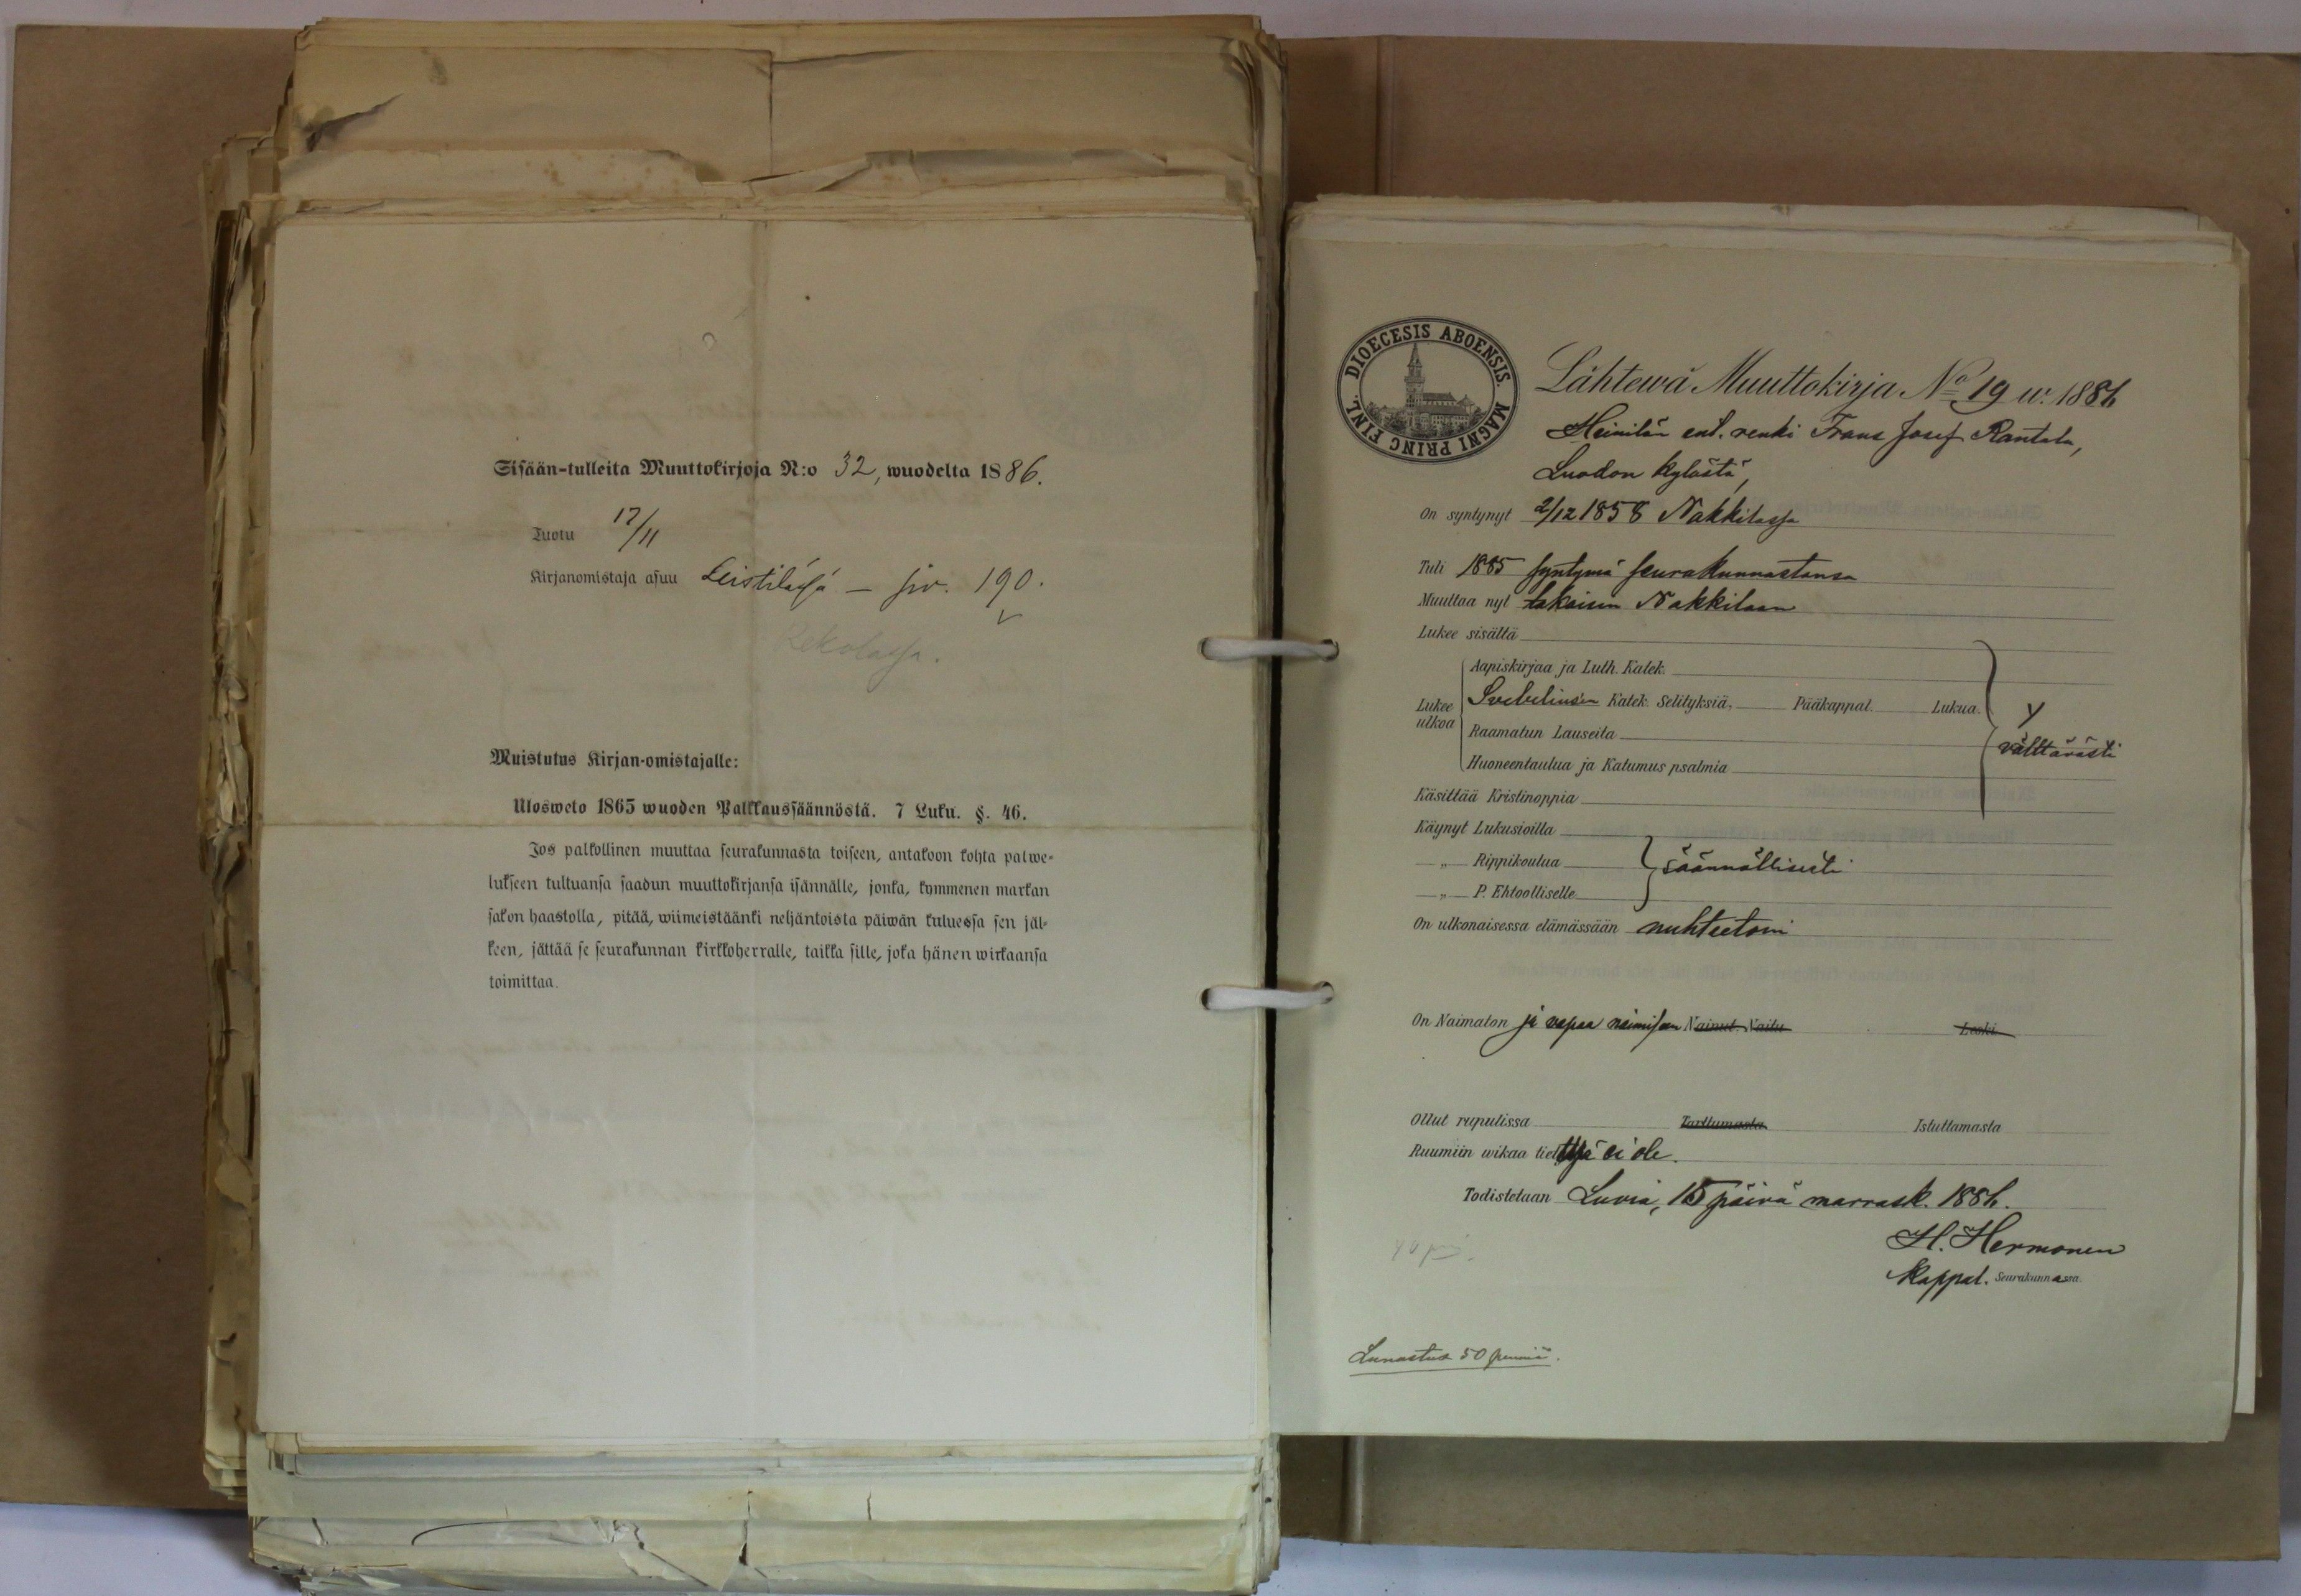 Sisään-tulleita Muuttokirjoja N:o 32, wuodelta 1886.
Tuotu 17/11
Kirjanomistaja asuu Leistilässä — siv. 190.
Rekolassa.
Muistutus Kirjan-omistajalle:
Ulosweto 1865 wuoden Palkkaussäännöstä. 7 Luku. §. 46.
Jos palkollinen muuttaa seurakunnasta toiseen, antakoon kohta palwe-
lukseen tultuansa saadun muuttokirjansa isännälle, jonka, kymmenen markan
sakon haastolla, pitää, wiimeistäänki neljäntoista päiwän kuluessa sen jäl-
keen, jättää se seurakunnan kirkkoherralle, taikka sille, joka hänen wirkaansa
toimittaa.
DIOECESIS ABOENSIS. MAGNI PRINC FINL.
Lähtewä Muuttokirja No 19 w. 1886
Heinilän ent. renki Frans Josef Rantala,
Luodon kylästä,
On syntynyt 2/12 1858 Nakkilassa
Tuli 1885 syntymä seurakunnastansa
Muuttaa nyt takaisin Nakkilaan
Lukee sisältä
Lukee ulkoa
Aapiskirjaa ja Luth. Katek.
Svebeliusen Katek. Selityksiä, Pääkappal. Lukua.
Raamatun Lauseita
välttävästi
Huoneentaulua ja Katumus psalmia
Käsittää Kristinoppia
Käynyt Lukusioilla
—„— Rippikoulua säännöllisesti
—„— P. Ehtoolliselle
On ulkonaisessa elämässään nuhteetoin
On Naimaton ja vapaa naimisen Nainut. Naitu Leski
Ollut rupulissa Tarttumasta Istuttamasta
Ruumiin wikaa tiettyä ei ole.
Todistetaan Luvia, 15 päivä marrask. 1886.
H. Hermonen
Kappal. Seurakunnassa.
Lunastus 50 penniä.